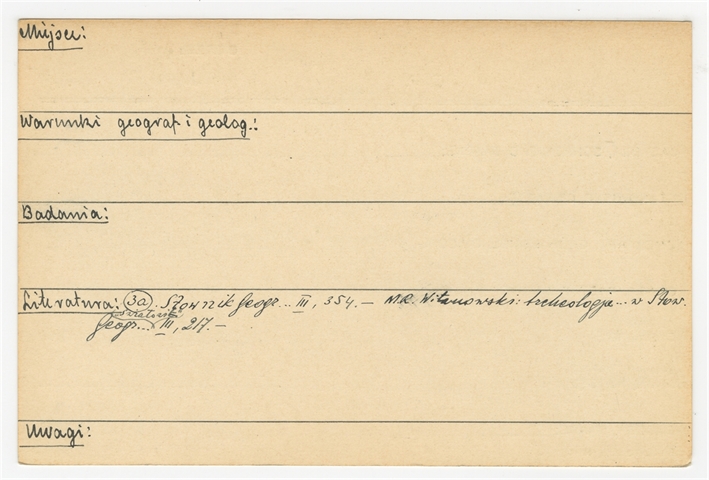 Miejsce:
Warunki geograf i geolog.:
Badania:
Literatura: 3a. Słownik Geogr... III, 354. — M.R. Witanowski: Archeologja... w Słow.
Geogr... III, 217. —
Uwagi: